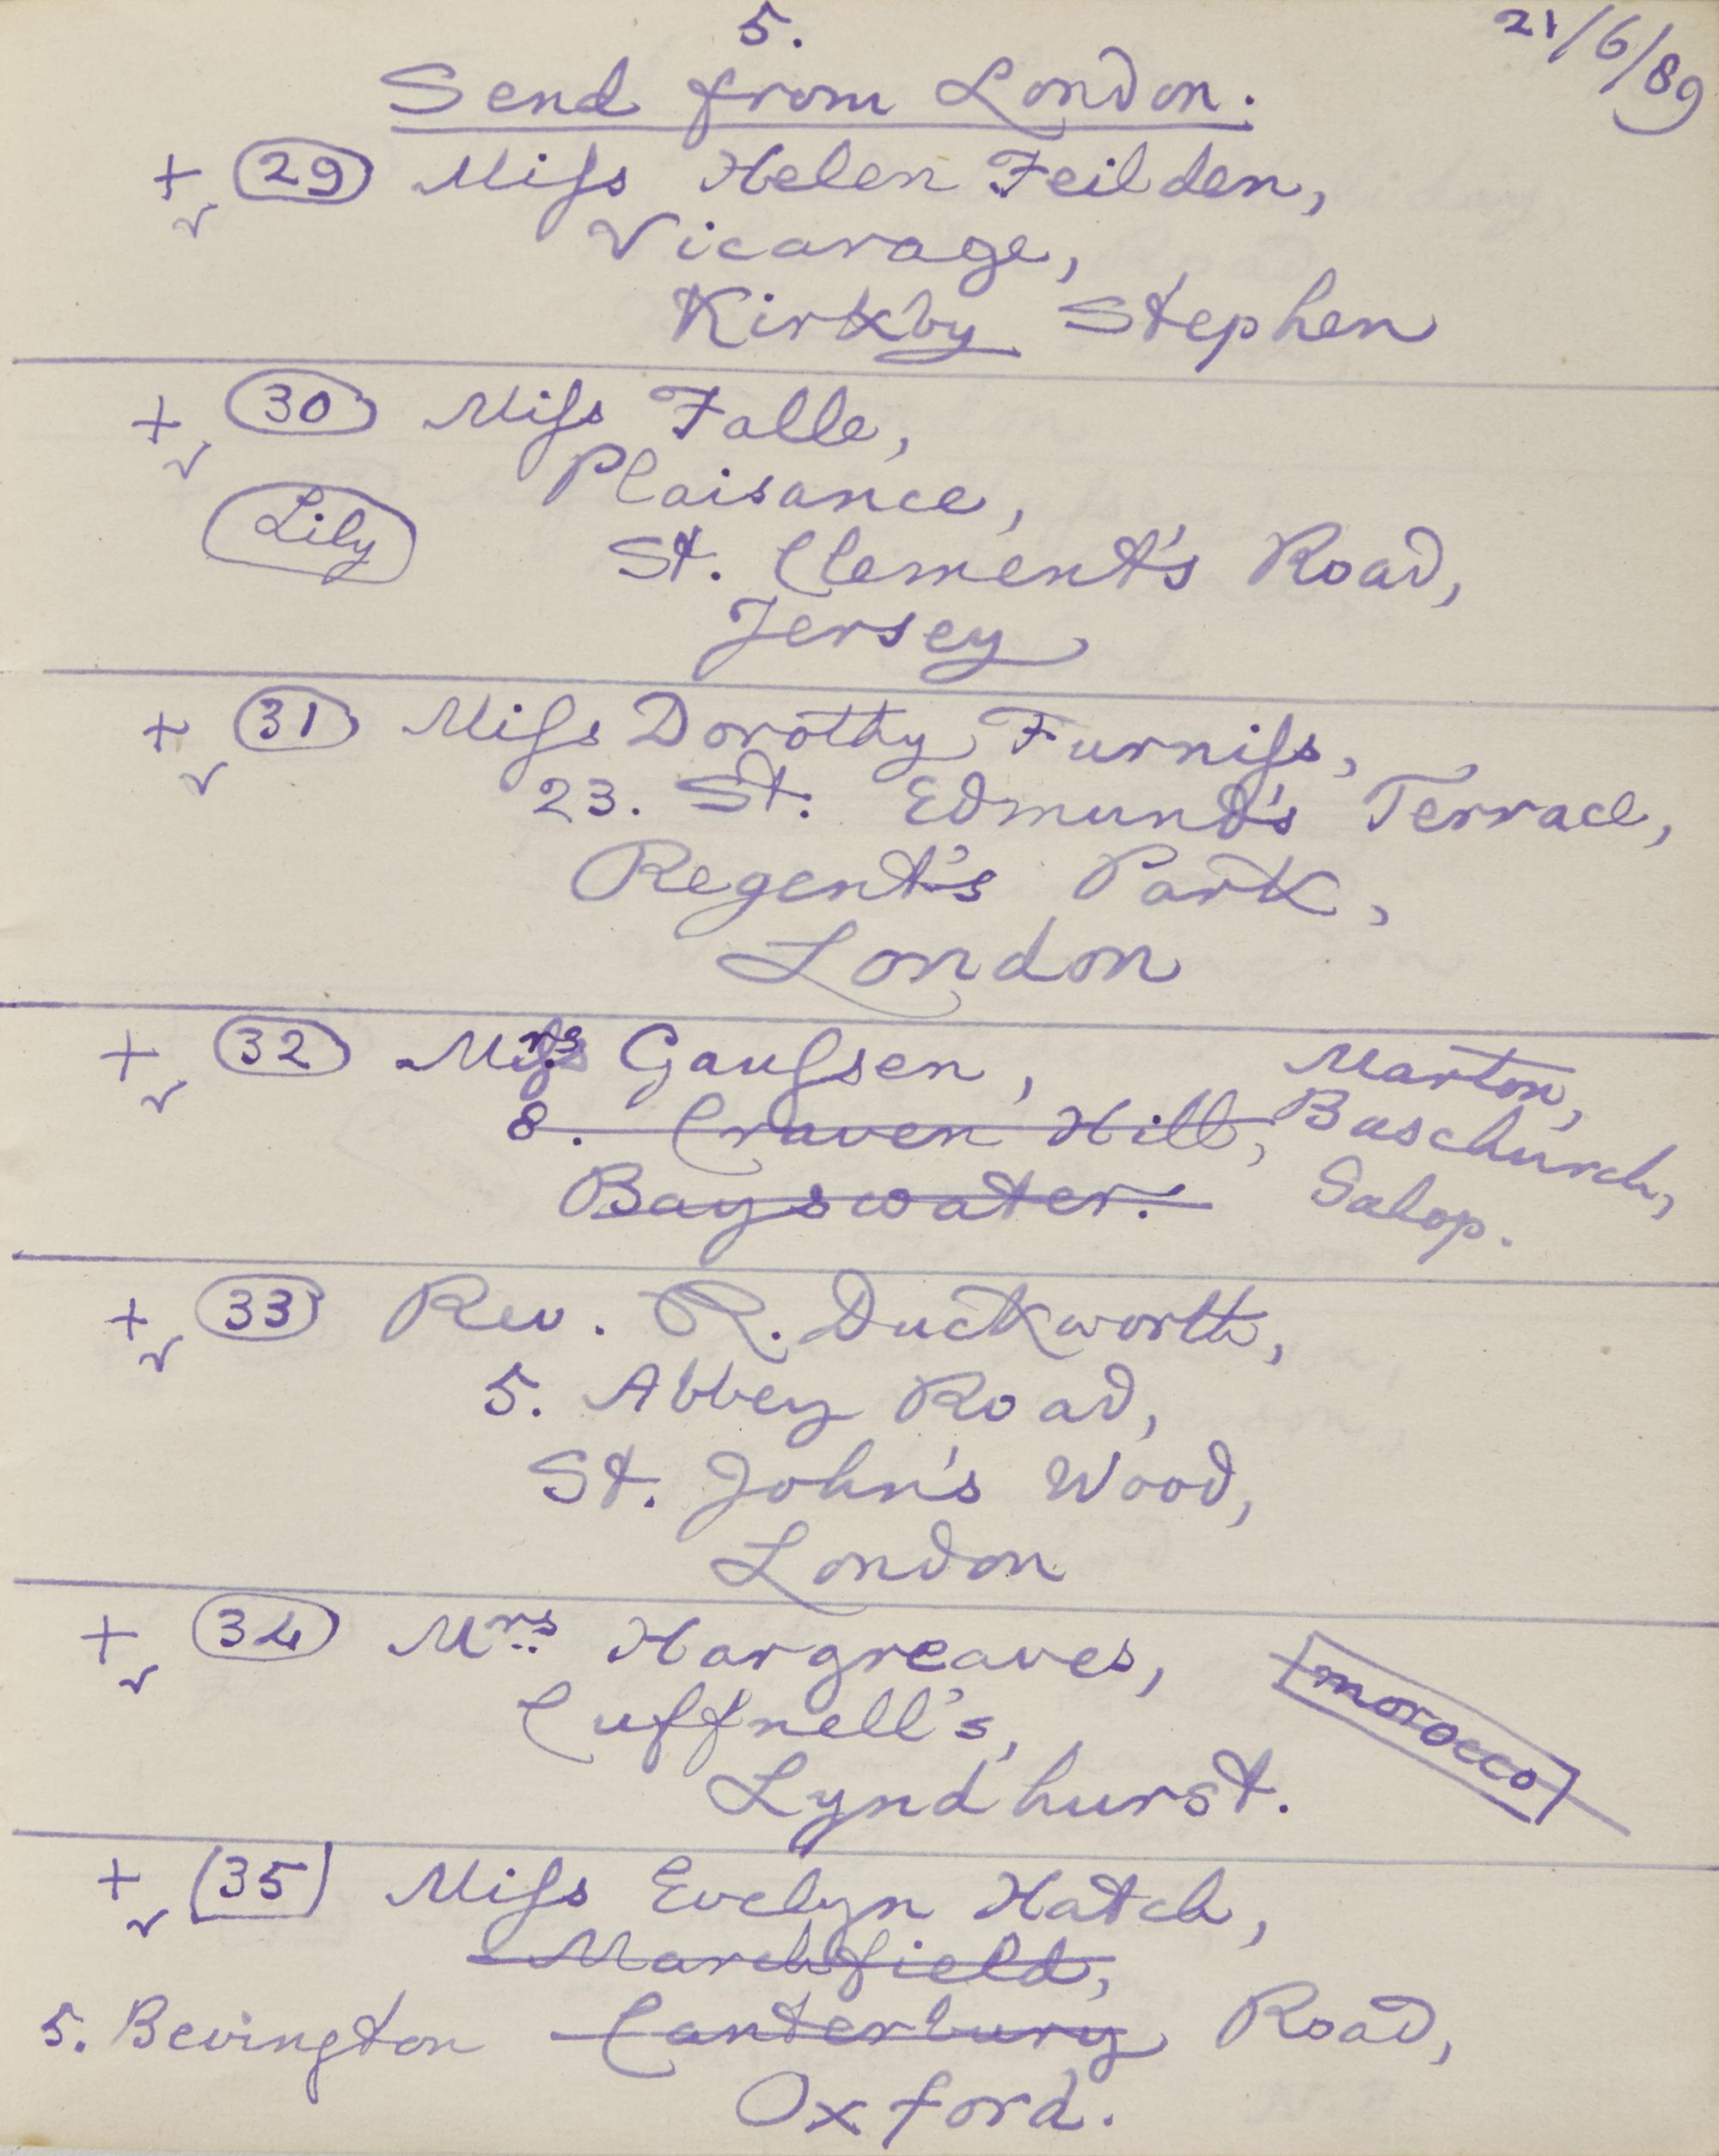 5.
21/6/89
Send from London.
+ 29 Miſs Helen Feilden,
✓
Vicarage,
Kirkby Stephen
+ 30 Miſs Falle,
✓
Plaisance,
Lily
St. Clement's Road,
Jersey
+ 31 Miſs Dorothy Furniſs,
✓
23. St. Edmund's Terrace,
Regent's Park,
London
+ 32 Mrs Gauſsen, Marton,
✓
8. Craven Hill, Baschurch,
Bayswater. Salop.
+ 33 Rev. R. Duckworth,
✓
5. Abbey Road,
St. John's Wood,
London
+ 34 Mrs. Hargreaves,
✓
morocco
Cuffnell's,
Lyndhurst.
+ 35 Miſs Evelyn Hatch,
✓
Marchfield,
5. Bevington Canterbury Road,
Oxford.